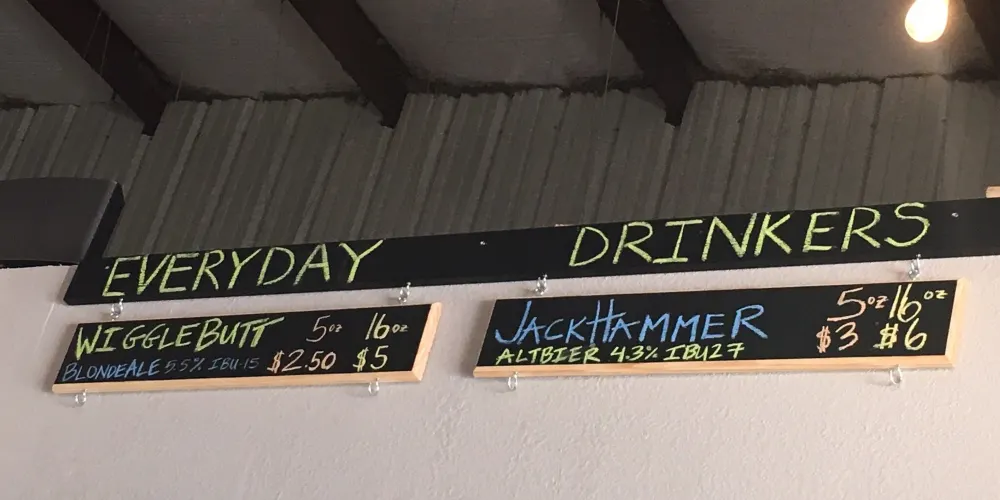 EVERYDAY DRINKERS
WIGGLEBUTT 5oz 16oz
BLONDEALE 5.5% IBU-15 $2.50 $5
JACKHAMMER 5oz 16oz
ALTBIER 4.3% IBU27 $3 $6